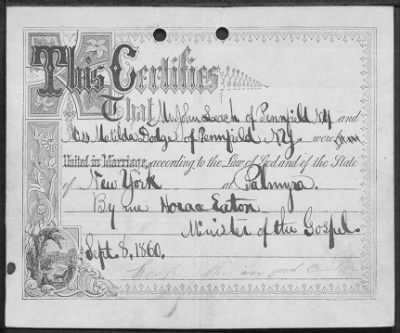 This Certifies
That Mr John Leach of Pennfield NY and
Miss Matilda Dodge of Pennfield NY. were by me
United in Marriage, according to the Law of God and of the State
of New York at Palmyra.
By me Horace Eaton
Minister of the Gospel
Sept. 8, 1860.